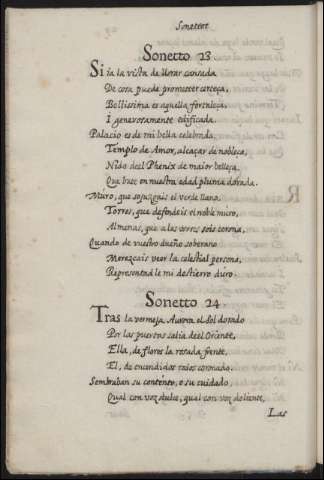 Sonetto 23
Si ia la vista de llorar cansada
De cosa pueda prometer certeça,
Bellissima es aquella fortaleça,
I generosamente edificada.
Palacio es de mi bella celebrada,
Templo de Amor, alcaçar de nobleça,
Nido del Phenix de maior belleça,
Que bate en nuestra edad pluma dorada.
Muro, que sojuzgais el verde llano,
Torres, que defendeis el noble muro,
Almenas, que a las torres sois corona,
Quando de vuestro dueño soberano
Merezcais veer la celestial persona,
Representad le mi destierro duro.
Sonetto 24
Tras la vermeja Aurora el Sol dorado
Por las puertas salia del Oriente,
Ella, de flores la rosada frente,
El, de encendidos raios coronado.
Sembraban su contento, o su cuidado,
Qual con voz dulce, qual con voz doliente,
Las